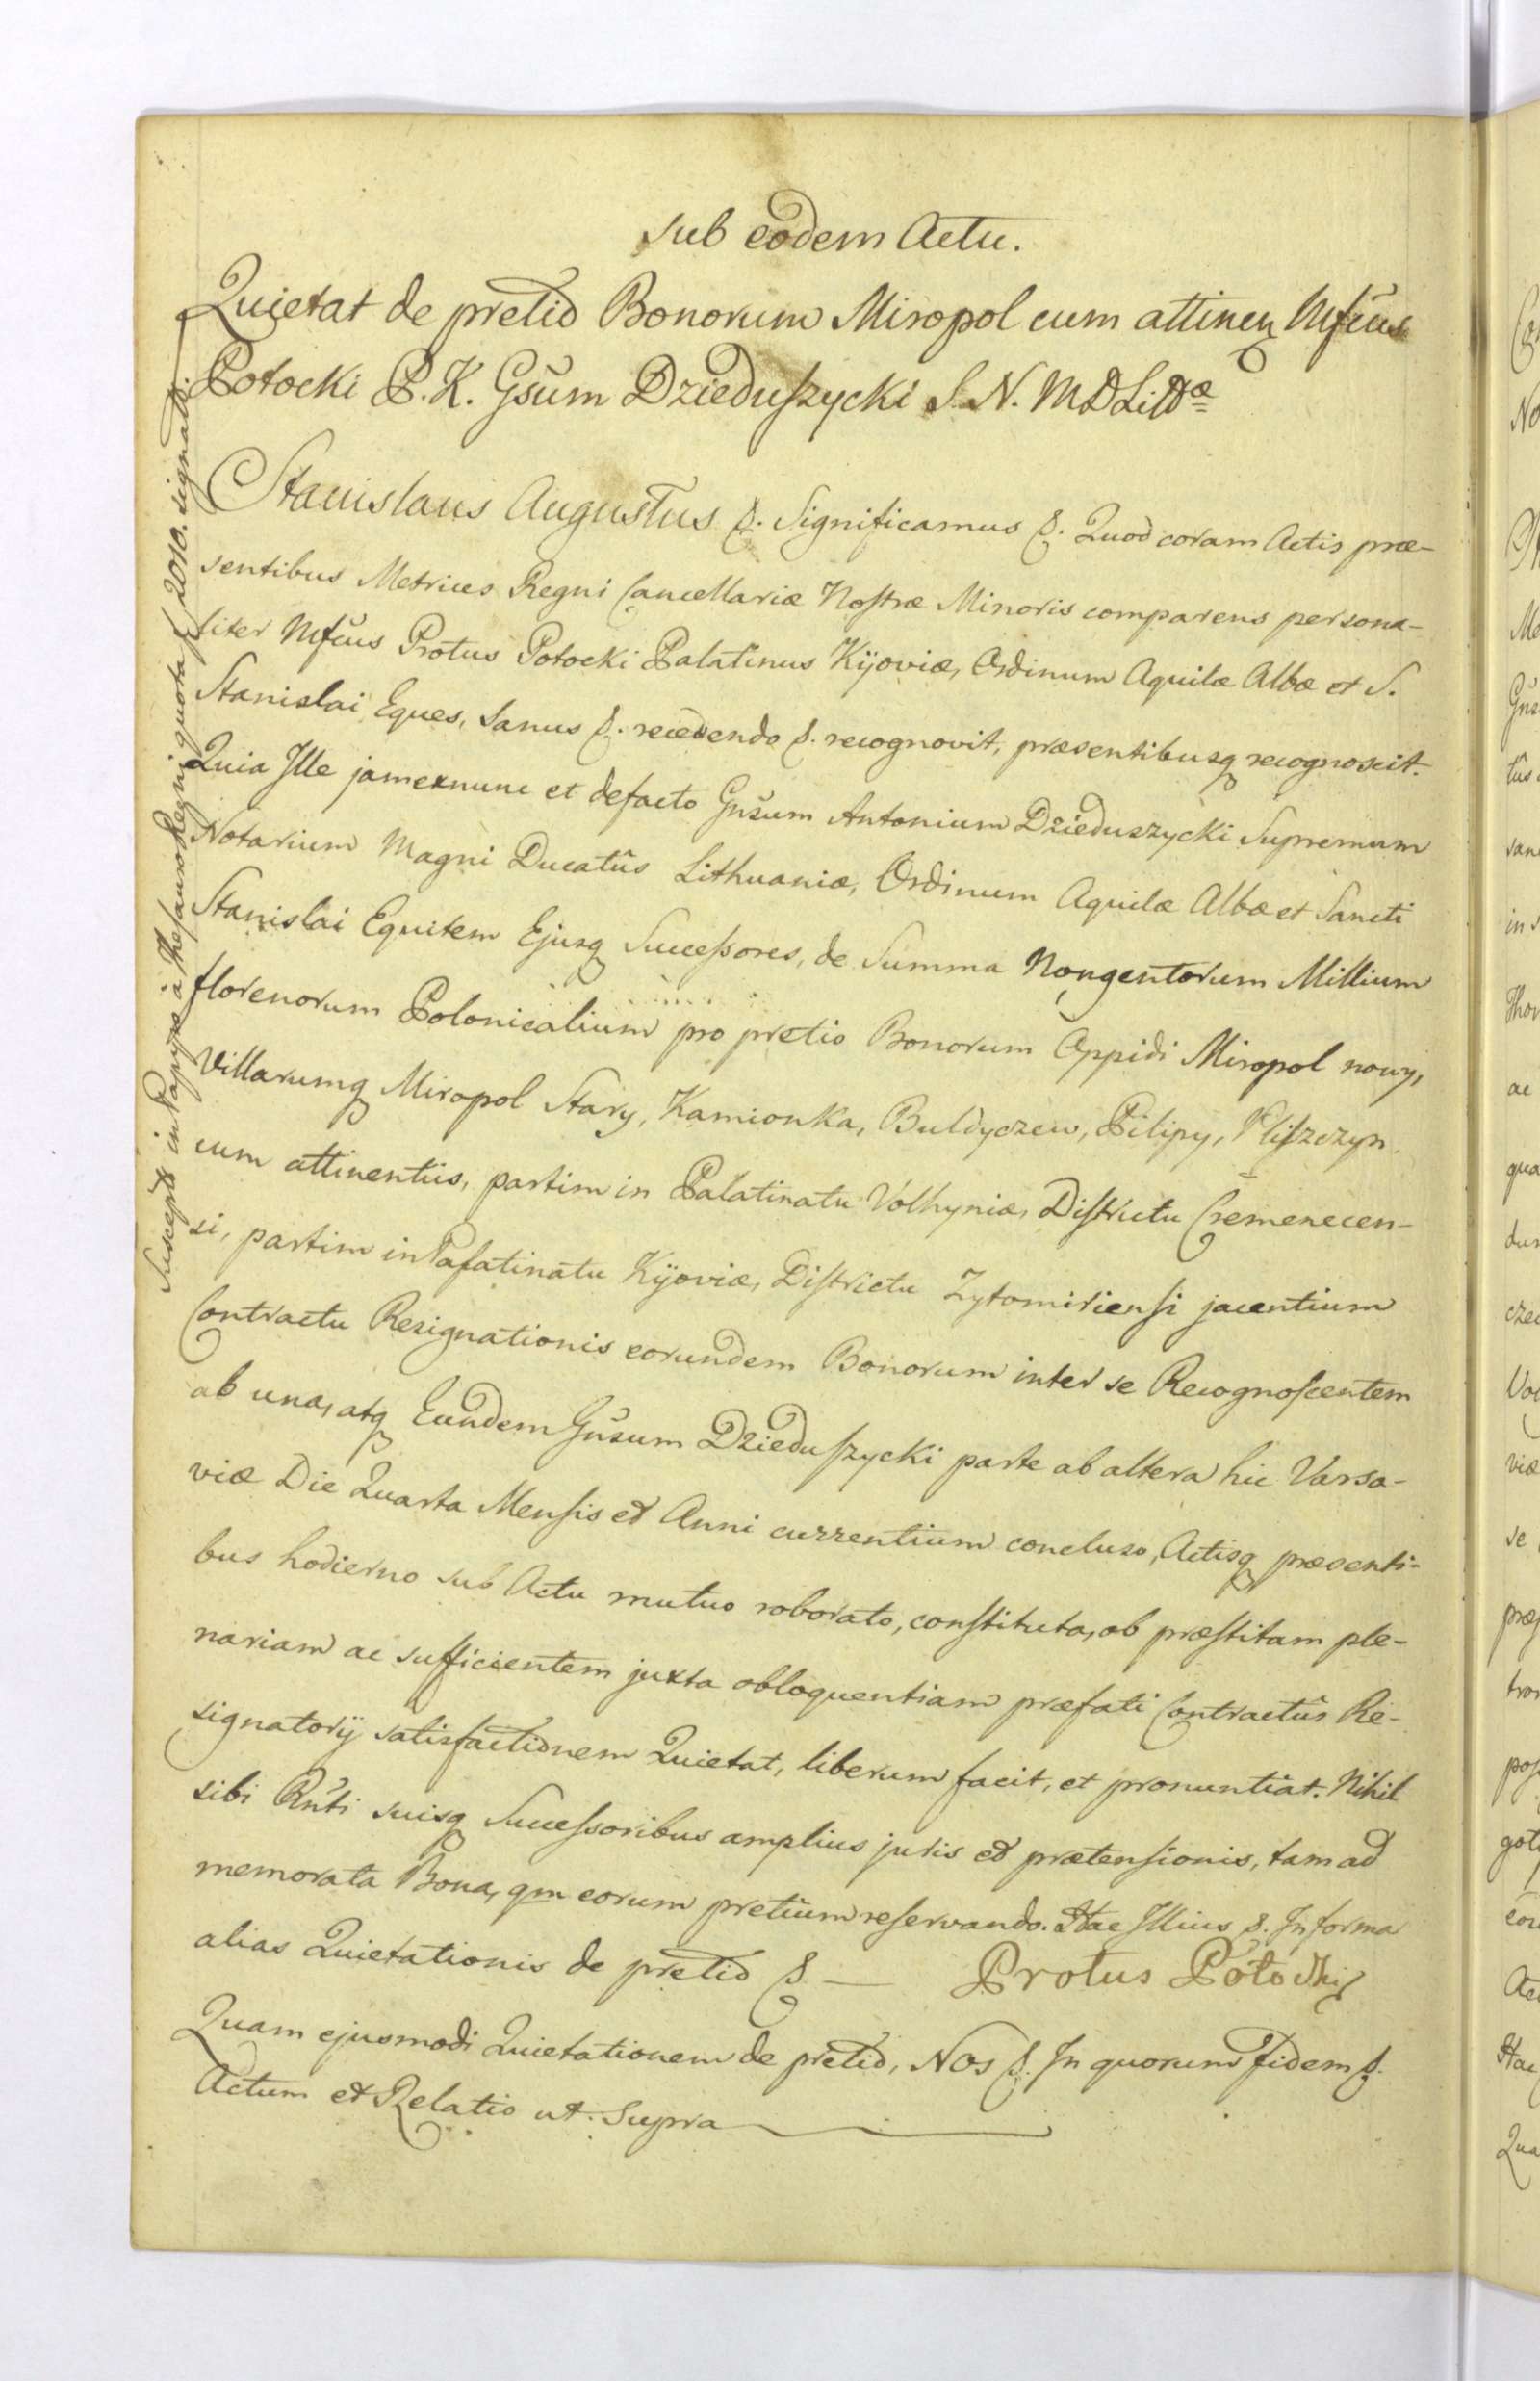 Sub eodem Actu.
Quietat de pretio Bonorum Miropol cum attinen Mfcus
Potocki P. K. Gsum Dzieduszycki S. N. M D Litt&aelig;
Stanislaus Augustus &. Significamus &. Quod coram Actis præ-
sentibus Metrices Regni Cancellariæ Nostræ Minoris comparens persona-
liter Mfcus Protus Potocki Palatinus Kijoviæ, Ordinum Aquilæ Albæ et S.
Stanislai Eques, sanus &. recedendo &. recognovit, præsentibusq recognoscit.
Quia Ille jamexnunc et defacto Gnsum Antonium Dzieduszycki Supremum
Notarium Magni Ducatûs Lithuaniæ, Ordinum Aquilæ Albæ et Sancti
Stanislai Equitem Ejusq Successores, de Summa Nongentorum Millium
florenorum Polonicalium pro pretio Bonorum Oppidi Miropol nowy,
Villarumq Miropol Stary, Kamionka, Buldyczew, Pilipy, Pliszczyn
cum attinentiis, partim in Palatinatu Volhyniæ, Districtu Cremenecen-
si, partim in Palatinatu Kijoviæ, Districtu Zytomiriensi jacentium
Contractu Resignationis eorundem Bonorum inter se Recognoscentem
ab una, atq Eundem Gnsum Dzieduszycki parte ab altera hic Varsa-
viæ Die Quarta Mensis et Anni currentium concluso, Actisq præsenti-
bus hodierno sub Actu mutuo roborato, constituta, ob præstitam ple-
nariam ac sufficientem juxta obloquentiam præfati Contractûs Re-
signatorij satisfactionem Quietat, liberum facit, et pronuntiat. Nihil
sibi Rnti suisq Successoribus amplius juris et prætensionis, tam ad
memorata Bona, qm eorum pretium reservando. Hac Illius &. In forma
alias Quietationis de pretio & — Protus Potocki
Quam ejusmodi Quietationem de pretio, Nos &. In quorum Fidem &.
Actum et Relatio ut Supra
Suscepta in Papyro a Thesauro Regni quota f 2010. signati.